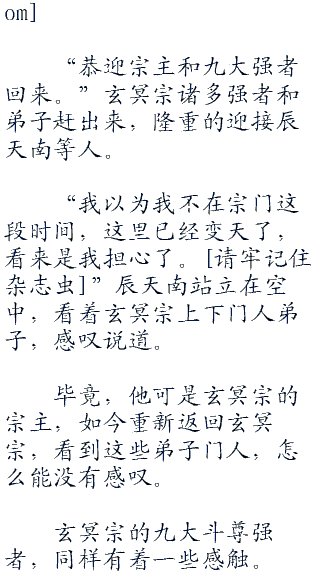 om]
“恭迎宗主和九大强者
回来。”玄冥宗诸多强者和
弟子赶出来，隆重的迎接辰
天南等人。
“我以为我不在宗门这
段时间，这里已经变天了，
看来是我担心了。[请牢记住
杂志虫]”辰天南站立在空
中，看着玄冥宗上下门人弟
子，感叹说道。
毕竟，他可是玄冥宗的
宗主，如今重新返回玄冥
宗，看到这些弟子门人，怎
么能没有感叹。
玄冥宗的九大斗尊强
者，同样有着一些感触。